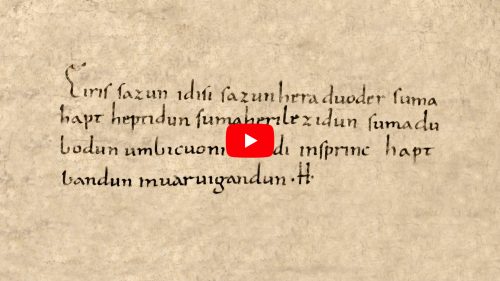 Eiris sazun idisi sazunheraduoder suma
hapt heptidun sumaherilezidun sumaclu
bodun umbicuoni di insprinc hapt
bandun inuaruigandun ·H·